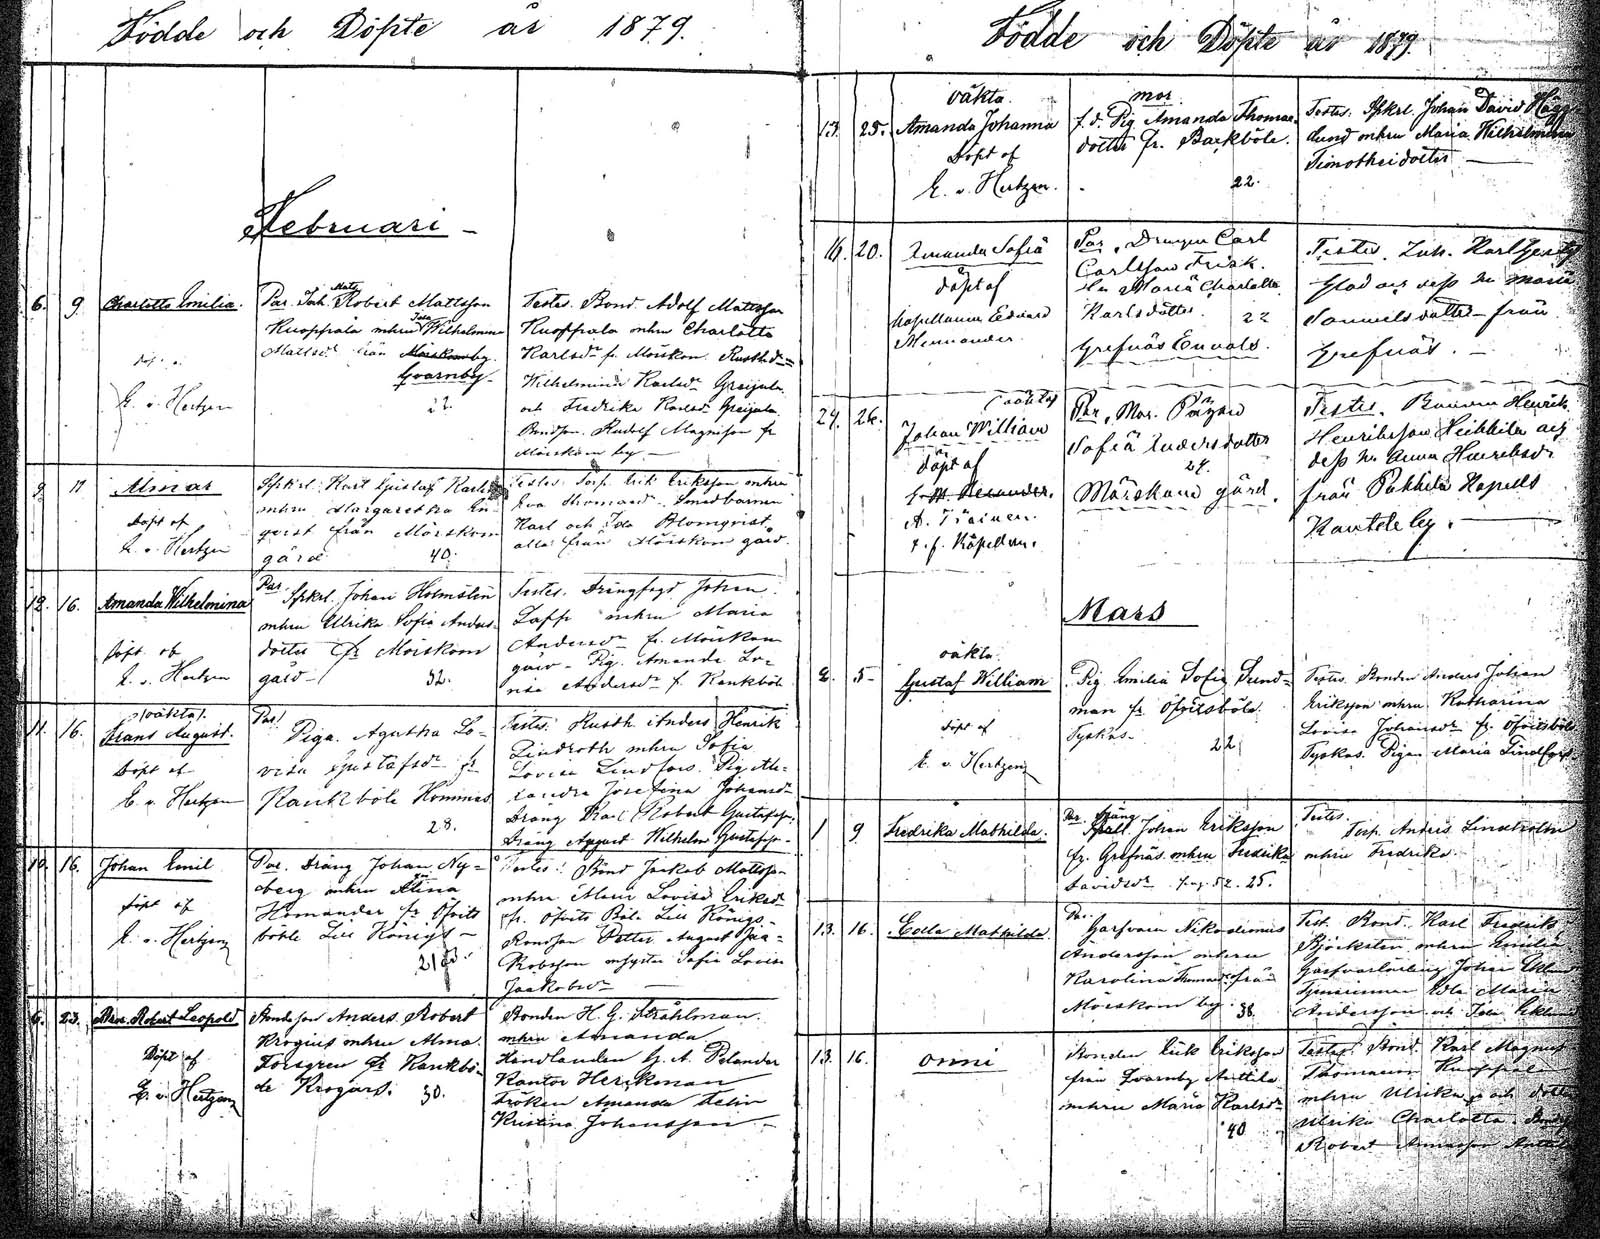 Födde och Döpte år 1879.
Februari
6. 9. Charlotta Emilia.
döpt af
E. v. Hertzen
Par. Inh. Robert Mattsson
Knoppala mhru Ida Wilhelmina
Mattsdr från Mörskomby.
Qvarnby.
22.
Testes. Bond. Adolf Mattsson
Knoppala mhru Charlotta
Karlsdr fr. Mörskom. Rusth.
Wilhelmina Karlsdr Greijula
och Fredrika Karlsdr Greijula
Bondson. Rudolf Magnisson fr
Mörskom by
9 11 Almar
Döpt af
E. v. Hertzen
Spkrl. Karl Gustaf Karls
mhru Margaretha En-
qvist från Mörskom
gård 40.
Testes. Torp. Erik Eriksson mhru
Eva Thomasdr. Smedbarnen
Karl och Ida Blomqvist
alla från Mörskom gård.
12. 16. Amanda Wilhelmina
Döpt. af
E. v. Hertzen
Par Spkrl. Johan Holmstén
mhru Ulrika Sofia Anders-
dotter fr Mörskom
gård 32.
Testes. Drängfogd Johan
Lapp mhru Maria
Andersdr fr. Mörskom
gård. Pig. Amanda Lo-
visa Andersdr f. Kankböle
11. 16. oäkta
Frans August.
Döpt af
E. v. Hertzen
Par Piga. Agatha Lo-
visa Gustafsdr fr
Kankböle Hommas
28.
Testes: Rusth Anders Henrik
Lindroth mhru Sofia
Lovisa Lindfors. Pig Ale-
xandra Josefina Johansdr
Dräng Karl Robert Gustafsson.
Dräng August Wilhelm Gustafsson
10. 16. Johan Emil
Döpt af
E. v. Hertzen
Par. Dräng Johan Ny-
berg mhru Alina
Homander fr Öfvits
böle Lill Königs
Testes: Bond Jaakob Mattsson
mhru Maria Lovisa Eriksdr
fr. Öfvits Böle Lill Königs-
Bondson Petter August Jaa-
kobsson o syster Sofia Lovisa
Jaakobsdr
6. 23. Robert Leopold
Döpt af
E. v. Hertzen
Bondeson Anders Robert
Krogius mhru Alma
Forsgren fr Kankbö-
le Krogars. 30.
Bonden H. G. Stråhlman.
mhru Amanda
Handlanden G. A. Pelander
Kantor Herckman
Fröken Amanda Felin
Kristina Johansson
Födde och Döpte år 1879.
13. 25. oäkta.
Amanda Johanna
Döpt af
E. v. Hertzen.
mor
f. d. Pig Amanda Thomas
dotter fr. Backböle.
22.
Testes. Spkrl. Johan David Hägg-
lund mhru Maria Wilhelmina
Timotheidotter
16. 20. Amanda Sofia
döpt af
Kapellanen Edvard
Mennander.
Par. Drängen Carl
Carlsson Frisk.
Hu Maria Charlotta
Karlsdotter. 22
Grefnäs Envals.
Testes. Inh. Karl Gustaf
Glad och dess hu Maria
Samuelsdotter från
Grefnäs.
24. 26. oäkta
Johan William
döpt af
A. Träinen.
t. f. Kapellan.
Par, Mor. Pigan
Sofia Andersdotter
24.
Mörskom gård.
Testes. Bonden Henrik
Henriksson Heikkilä och
dess h. Anna Henriksdr
från Pukkila Kapells
Kantele by.
Mars
2. 5. oäkta
Gustaf William
Döpt af
E. v. Hertzen
Pig Emilia Sofia Sund-
man fr Öfvitsböle
Tyskas. 22
Testes Bonden Anders Johan
Eriksson mhru Katharina
Lovisa Johansdr fr. Öfvitsböle
Tyskas. Pigan Maria Lindfors
1 9 Fredrika Mathilda.
Par Dräng
Johan Eriksson
fr. Grefnäs mhru Fredrika
Davidsdr 25.
Testes.
Torp. Anders Lindholm
mhru Fredrika.
13. 16. Edla Mathilda
Par. Garfvaren Nikodemus
Andersson mhru
Karolina Thomasdr från
Mörskom by. 38
Test. Bond. Karl Fredrik
Björksten mhru Emilia
Garfvarlärling Johan Eklund
Tjenarinnan Edla Maria
Andersson och Ida Eklund
13. 16. Onni
Bonden Erik Eriksson
från Qvarnby Anttila
mhru Maria Karlsdr
40
Testes Bond. Karl Magnus
Thomasson Knoppala
mhru Ulrika och dotter
Ulrika Charlotta.
Robert